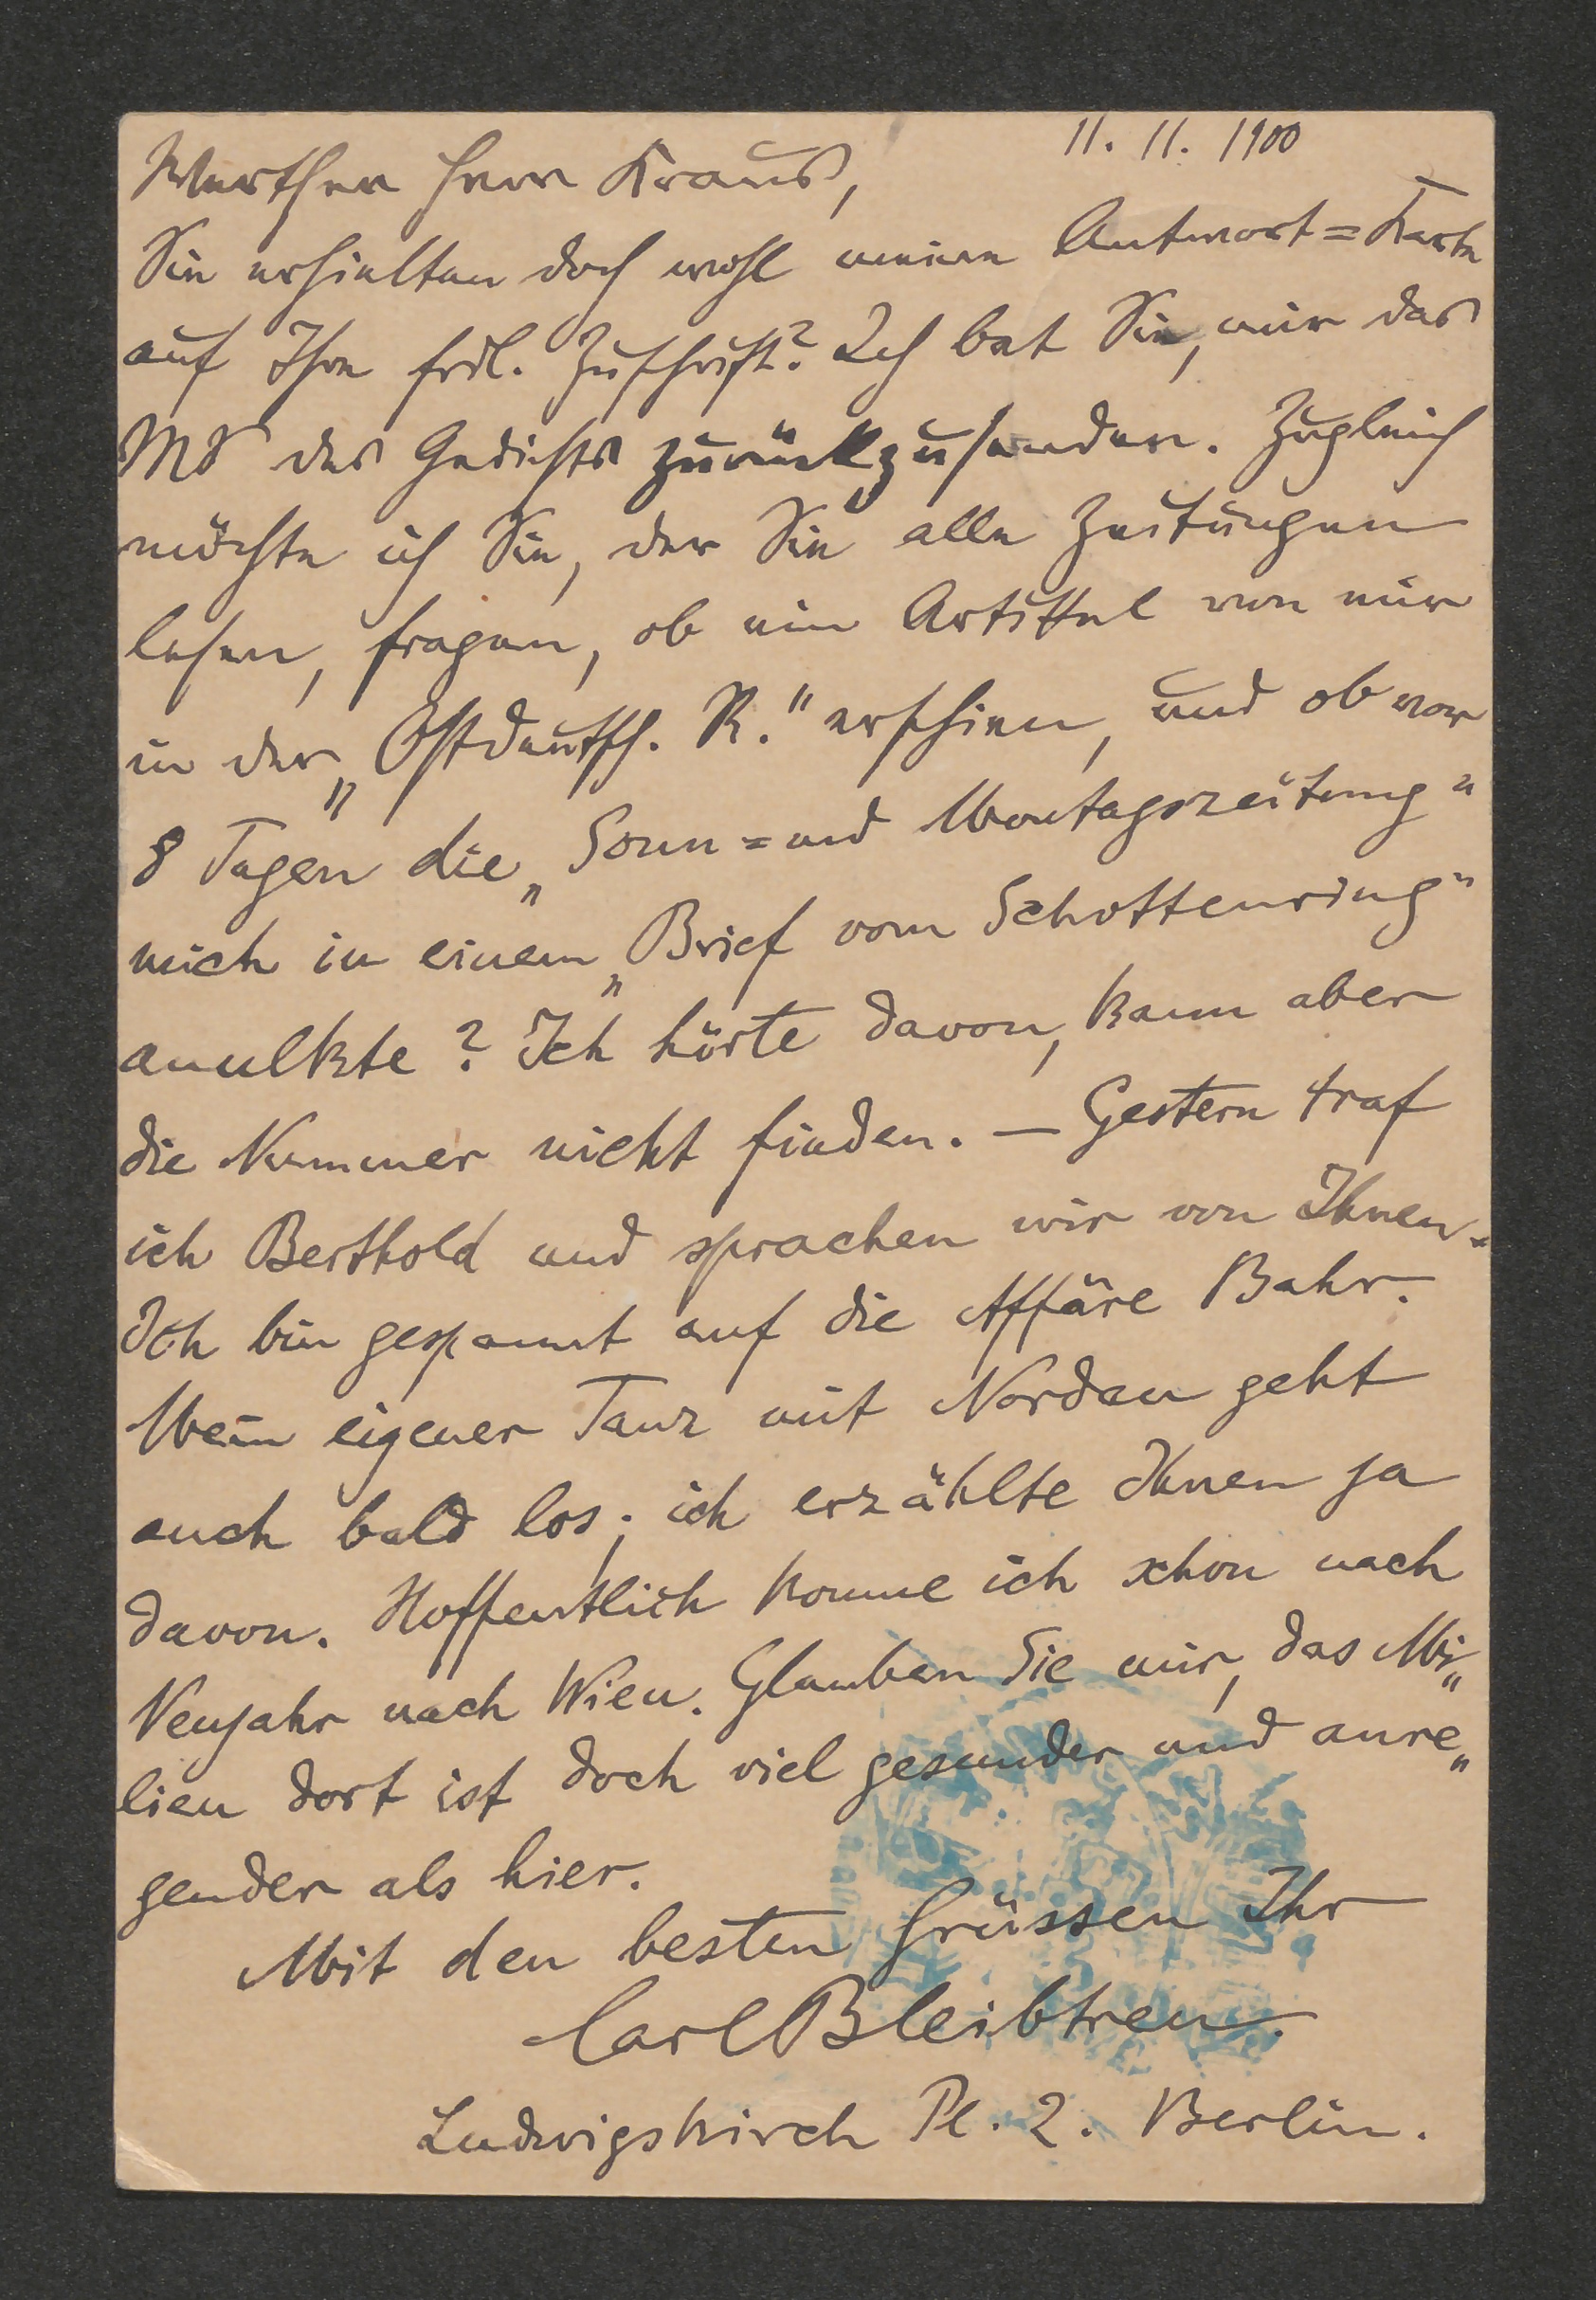 11. 11. 1900
Werther Herr Kraus,
Sie erhielten doch wohl meine Antwort=Karte
auf Ihre frdl. Zuschrift? Ich bat Sie, mir das
MS des Gedichts zurückzusenden. Zugleich
möchte ich Sie, der Sie alle Zeitungen
lesen, fragen, ob ein Artikel von mir
in der „Ostdeutsch. R." erschien, und ob vor
8 Tagen die „Sonn= und Montagszeitung"
mich in einem „Brief vom Schottenring"
anulkte? Ich hörte davon, kann aber
die Nummer nicht finden. — Gestern traf
ich Berthold und sprachen wir von Ihnen.
Ich bin gespannt auf die Affäre Bahr.
Mein eigener Tanz mit Nordau geht
auch bald los; ich erzählte Ihnen ja
davon. Hoffentlich komme ich schon nach
Neujahr nach Wien. Glauben Sie mir, das Mi„
lieu dort ist doch viel gesunder und anre„
gender als hier.
Mit den besten Grüssen Ihr
Carl Bleibtreu.
Ludwigskirch Pl. 2. Berlin.